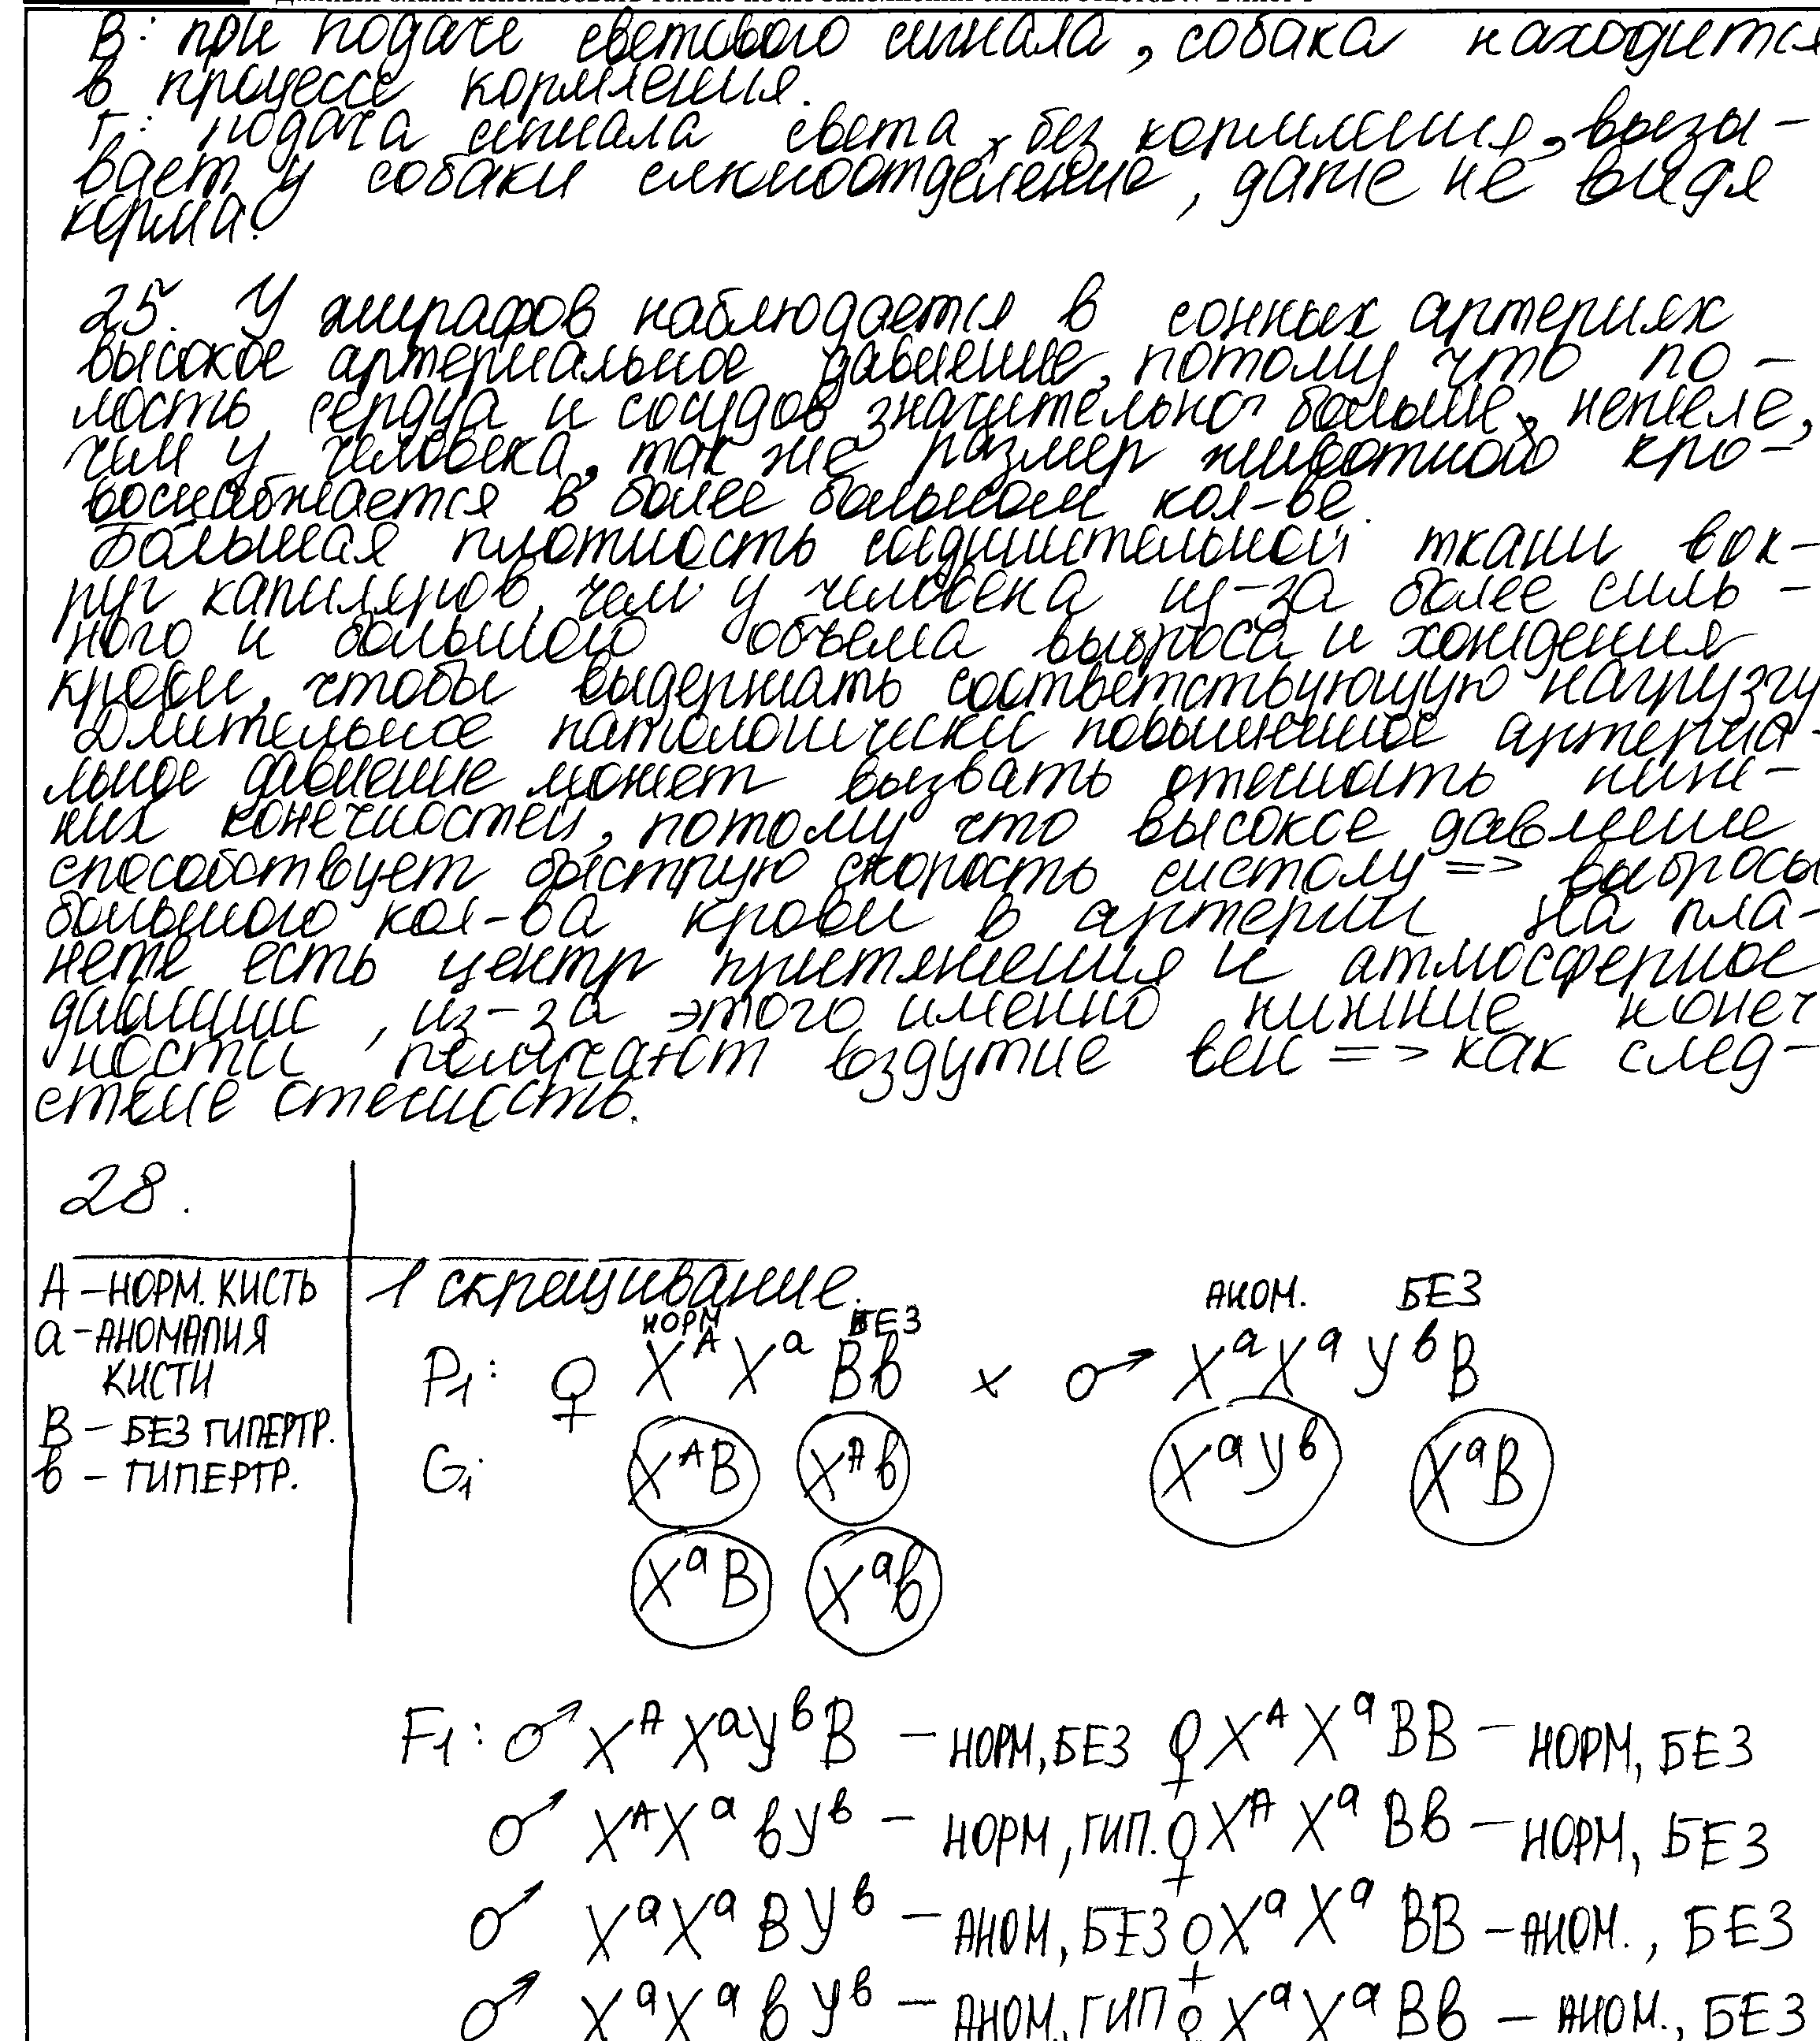 В: при подаче светового сигнала, собака находится
в процессе кормления.
Г: подача сигнала света, без кормления, вызы-
вает у собаки слюноотделение, даже не видя
корма.
25. У жирафов наблюдается в сонных артериях
высокое артериальное давление, потому что по-
лость сердца и сосудов значительно больше, нежеле,
чем у человека, так же размер животного кро-
воснабжается в более большом кол-ве.
Большая плотность соединительной ткани вок-
руг капиляров, чем у человека из-за более силь-
ного и большого объема выброса и хождения
крови, чтобы выдержать соответствующую нагрузгу
Длительное патологически повышенное артериа-
льное давление может вызвать отечность ниж-
них конечностей, потому что высокое давление
способствует быструю скорость систолу => выбросы
большого кол-ва крови в артерии. На пла-
нете есть центр притяжения и атмосферное
давление, из-за этого именно нижние конеч
ности получают вздутие вен => как след-
ствие отечность.
28.
А – НОРМ. КИСТЬ
а – АНОМАЛИЯ
КИСТИ
В – БЕЗ ГИПЕРТР.
в – ГИПЕРТР.
1 скрещивание.
НОРМ БЕЗ АНОМ. БЕЗ
P1: ♀ X^A X^a Вв x ♂ X^a X^a У^в В
G1: X^A В X^A в X^a У^в X^a В
X^a В X^a в
F1: ♂ X^A X^a У^в В – НОРМ, БЕЗ ♀ X^A X^a ВВ – НОРМ, БЕЗ
♂ X^A X^a в У^в – НОРМ, ГИП. ♀ X^A X^a Вв – НОРМ, БЕЗ
♂ X^a X^a В У^в – АНОМ, БЕЗ ♀ X^a X^a ВВ – АНОМ., БЕЗ
♂ X^a X^a в У^в – АНОМ., ГИП ♀ X^a X^a Вв – АНОМ., БЕЗ